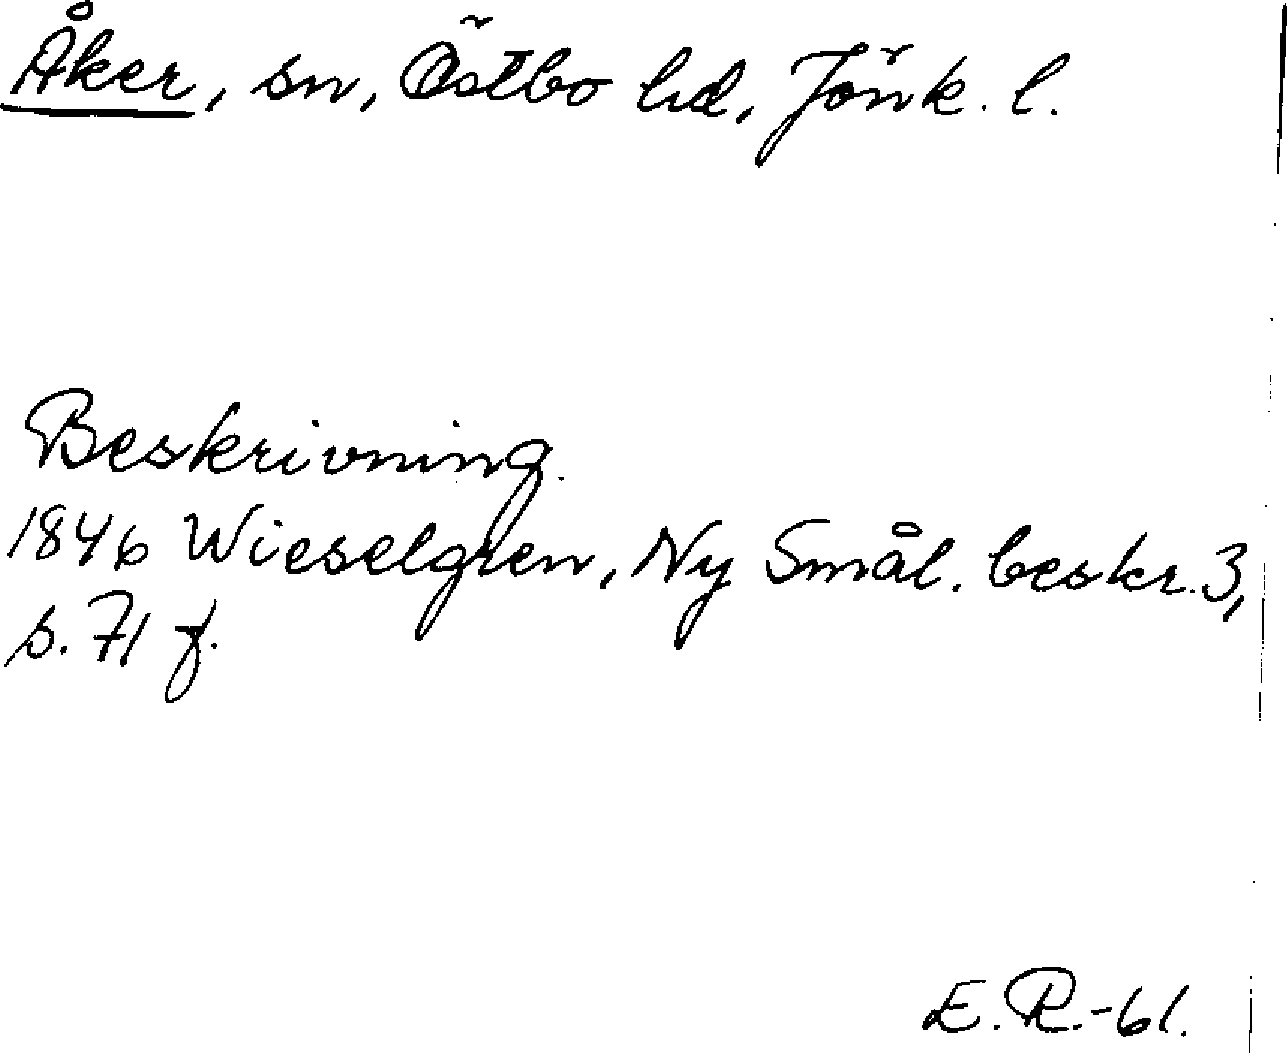 Åker, sn, Östbo hd, Jönk. l.
Beskrivning.
1846 Wieselgren, Ny Smål. beskr. 3,
s. 71 f.
E. R.-61.